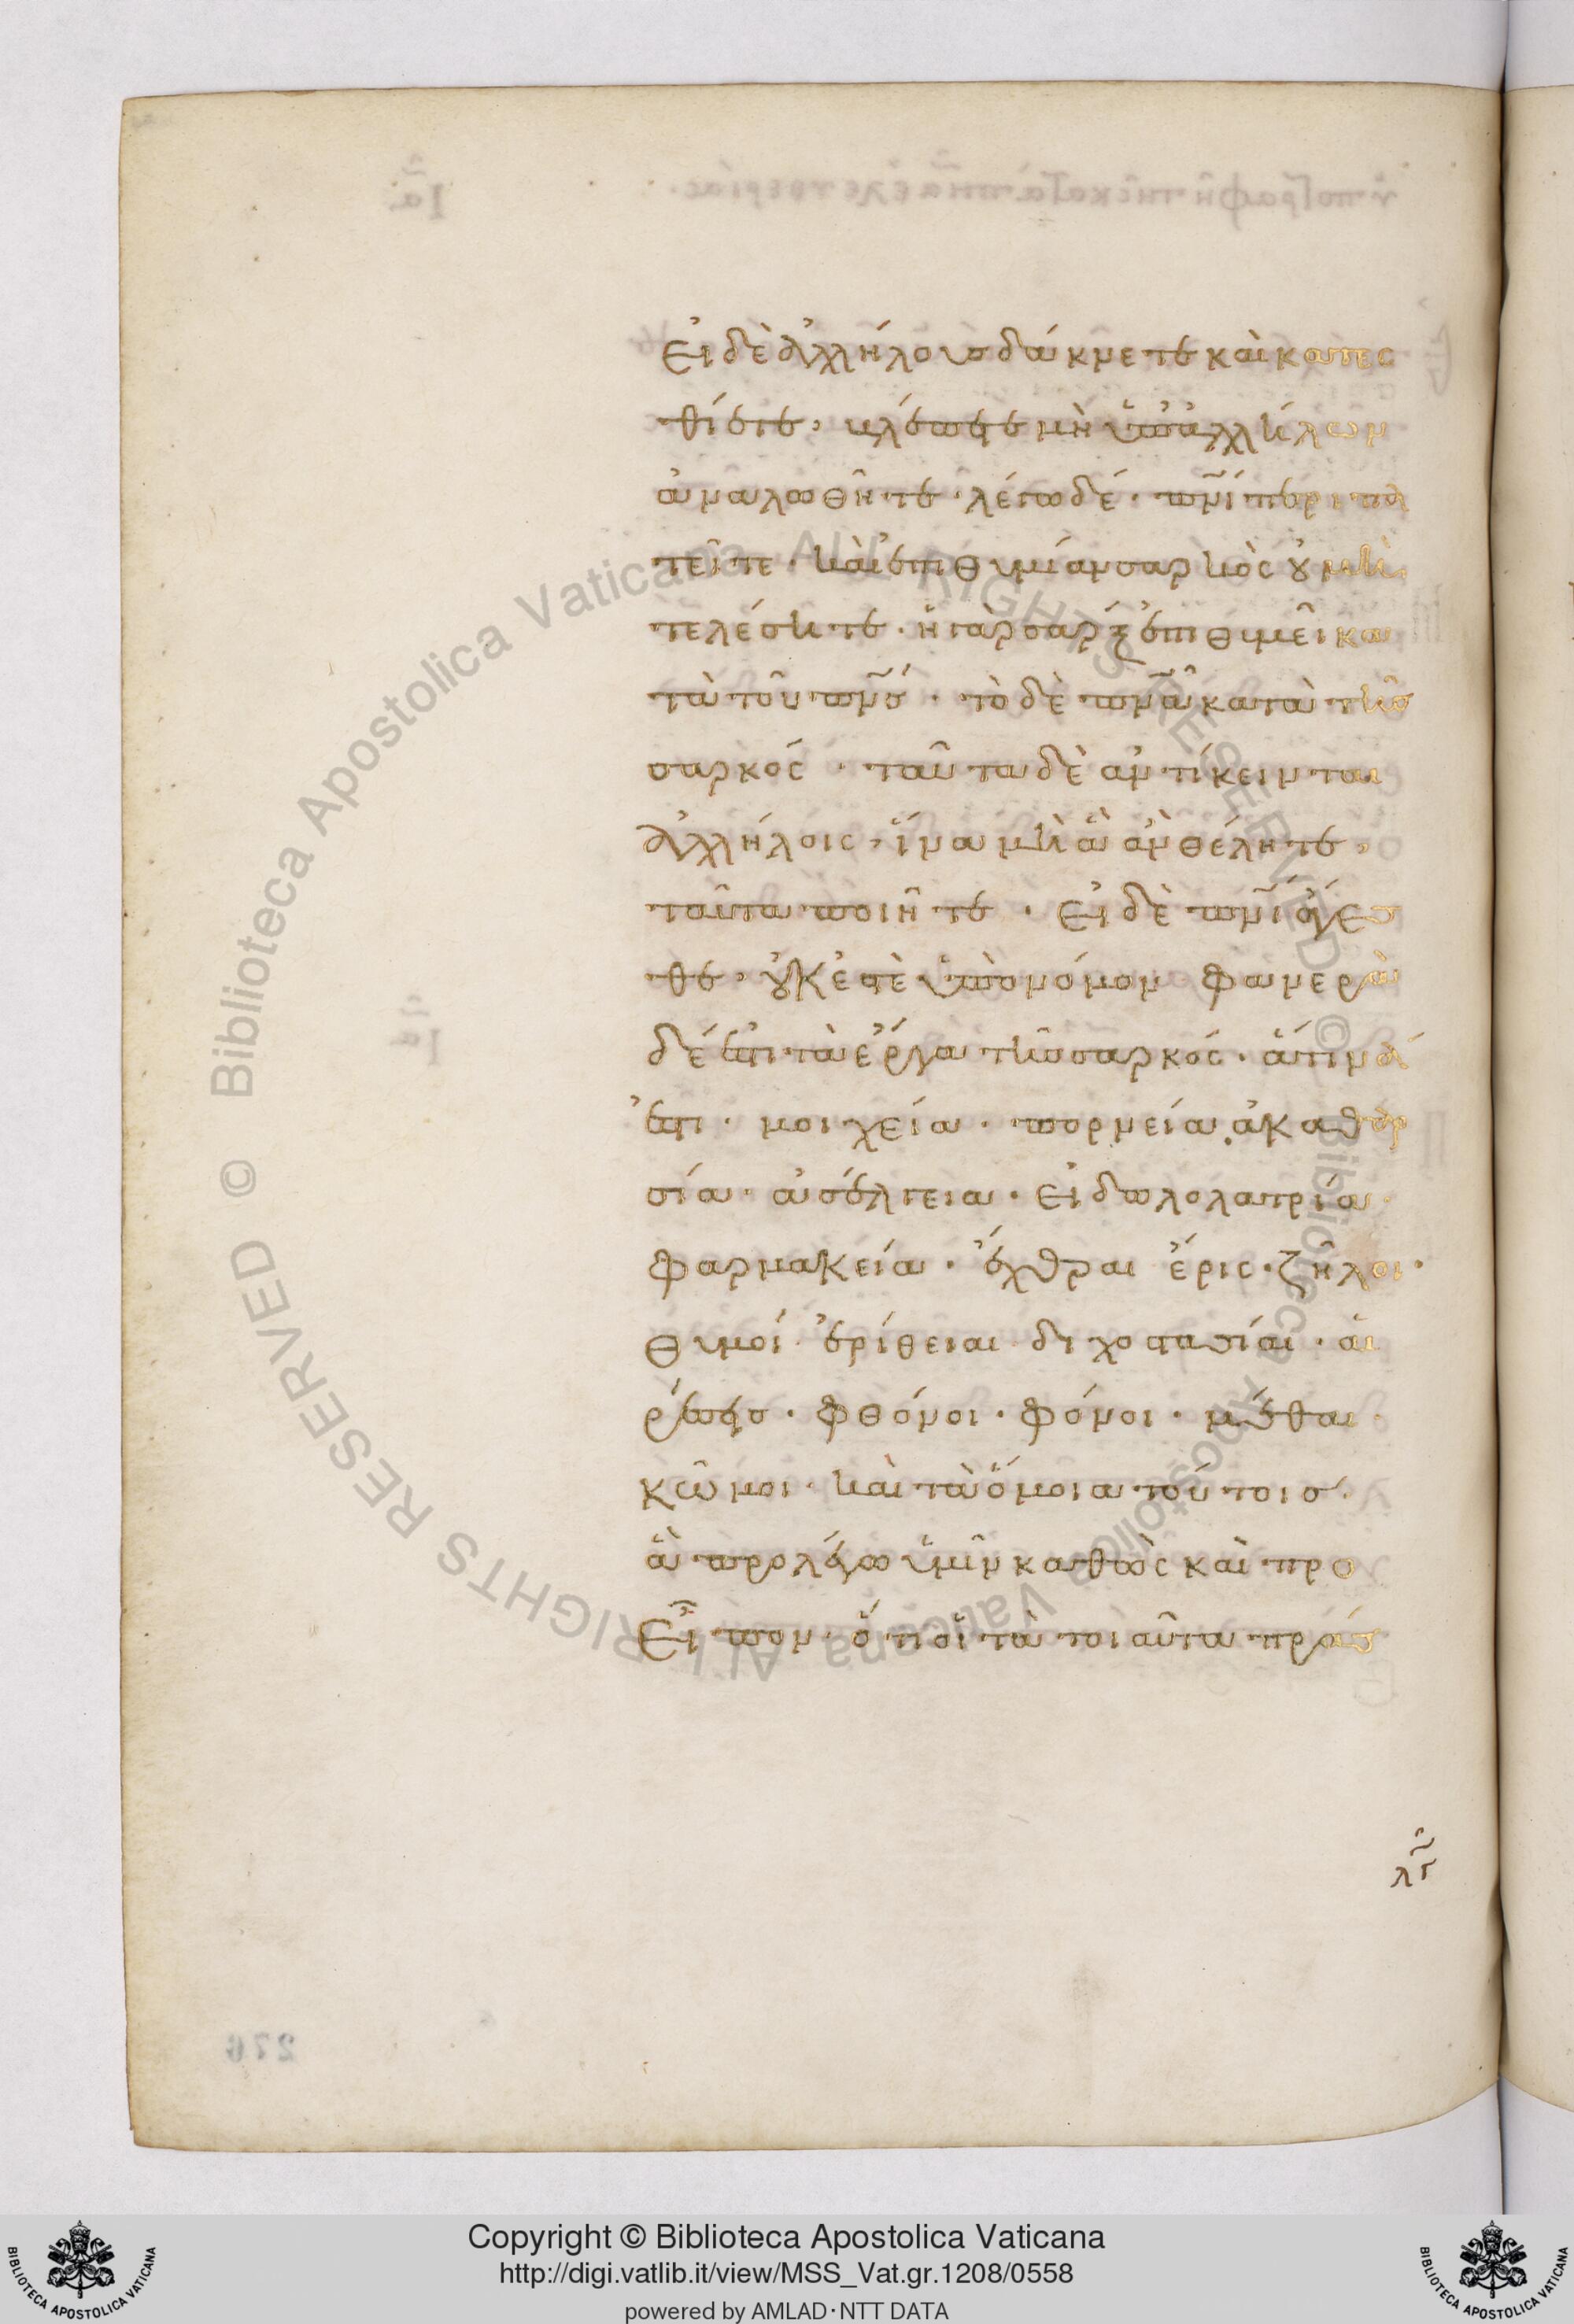 Εἰ δὲ ἀλλήλους δάκνετε καὶ κατεσ
θίετε, βλέπετε μὴ ὑπἀλλήλων
ἀναλωθῆτε · λέγω δέ · πνι περιπα
τεῖτε · καὶ ἐπιθυμίαν σαρκὸς οὐ μὴ
τελέσητε · ἡ γὰρ σὰρξ ἐπιθυμεῖ κα
τὰ τοῦ πνς · τὸ δὲ πνα κατὰ τῆς
σαρκός · ταῦτα δὲ ἀντίκεινται
ἀλλήλοις, ἵνα μὴ ἃ ἂν θέλητε,
ταῦτα ποιῆτε · Εἰ δὲ πνι ἄγεσ
θε, οὐκ ἐστὲ ὑπὸ νόμον φανερὰ
δέ ἐστι τὰ ἔργα τῆς σαρκός · ἅτινά
ἐστι · μοιχεία · πορνεία · ἀκαθαρ
σία · ἀσέλγεια · εἰδωλολατρία ·
φαρμακεία · ἔχθραι ἔρις · ζῆλοι ·
θυμοί · ἐρίθειαι διχοστασίαι · αἱ
ρέσεις · φθόνοι · φόνοι · μέθαι ·
κῶμοι · καὶ τὰ ὅμοια τούτοις ·
ἃ προλέγω ὑμῖν καθὼς καὶ προ
εῖπον · ὅτι οἱ τὰ τοιαῦτα πράσ
276
Copyright © Biblioteca Apostolica Vaticana
http://digi.vatlib.it/view/MSS_Vat.gr.1208/0558
powered by AMLAD·NTT DATA
BIBLIOTECA APOSTOLICA VATICANA
BIBLIOTECA APOSTOLICA VATICANA
© Biblioteca Apostolica Vaticana ALL RIGHTS RESERVED
© Biblioteca Apostolica Vaticana ALL RIGHTS RESERVED